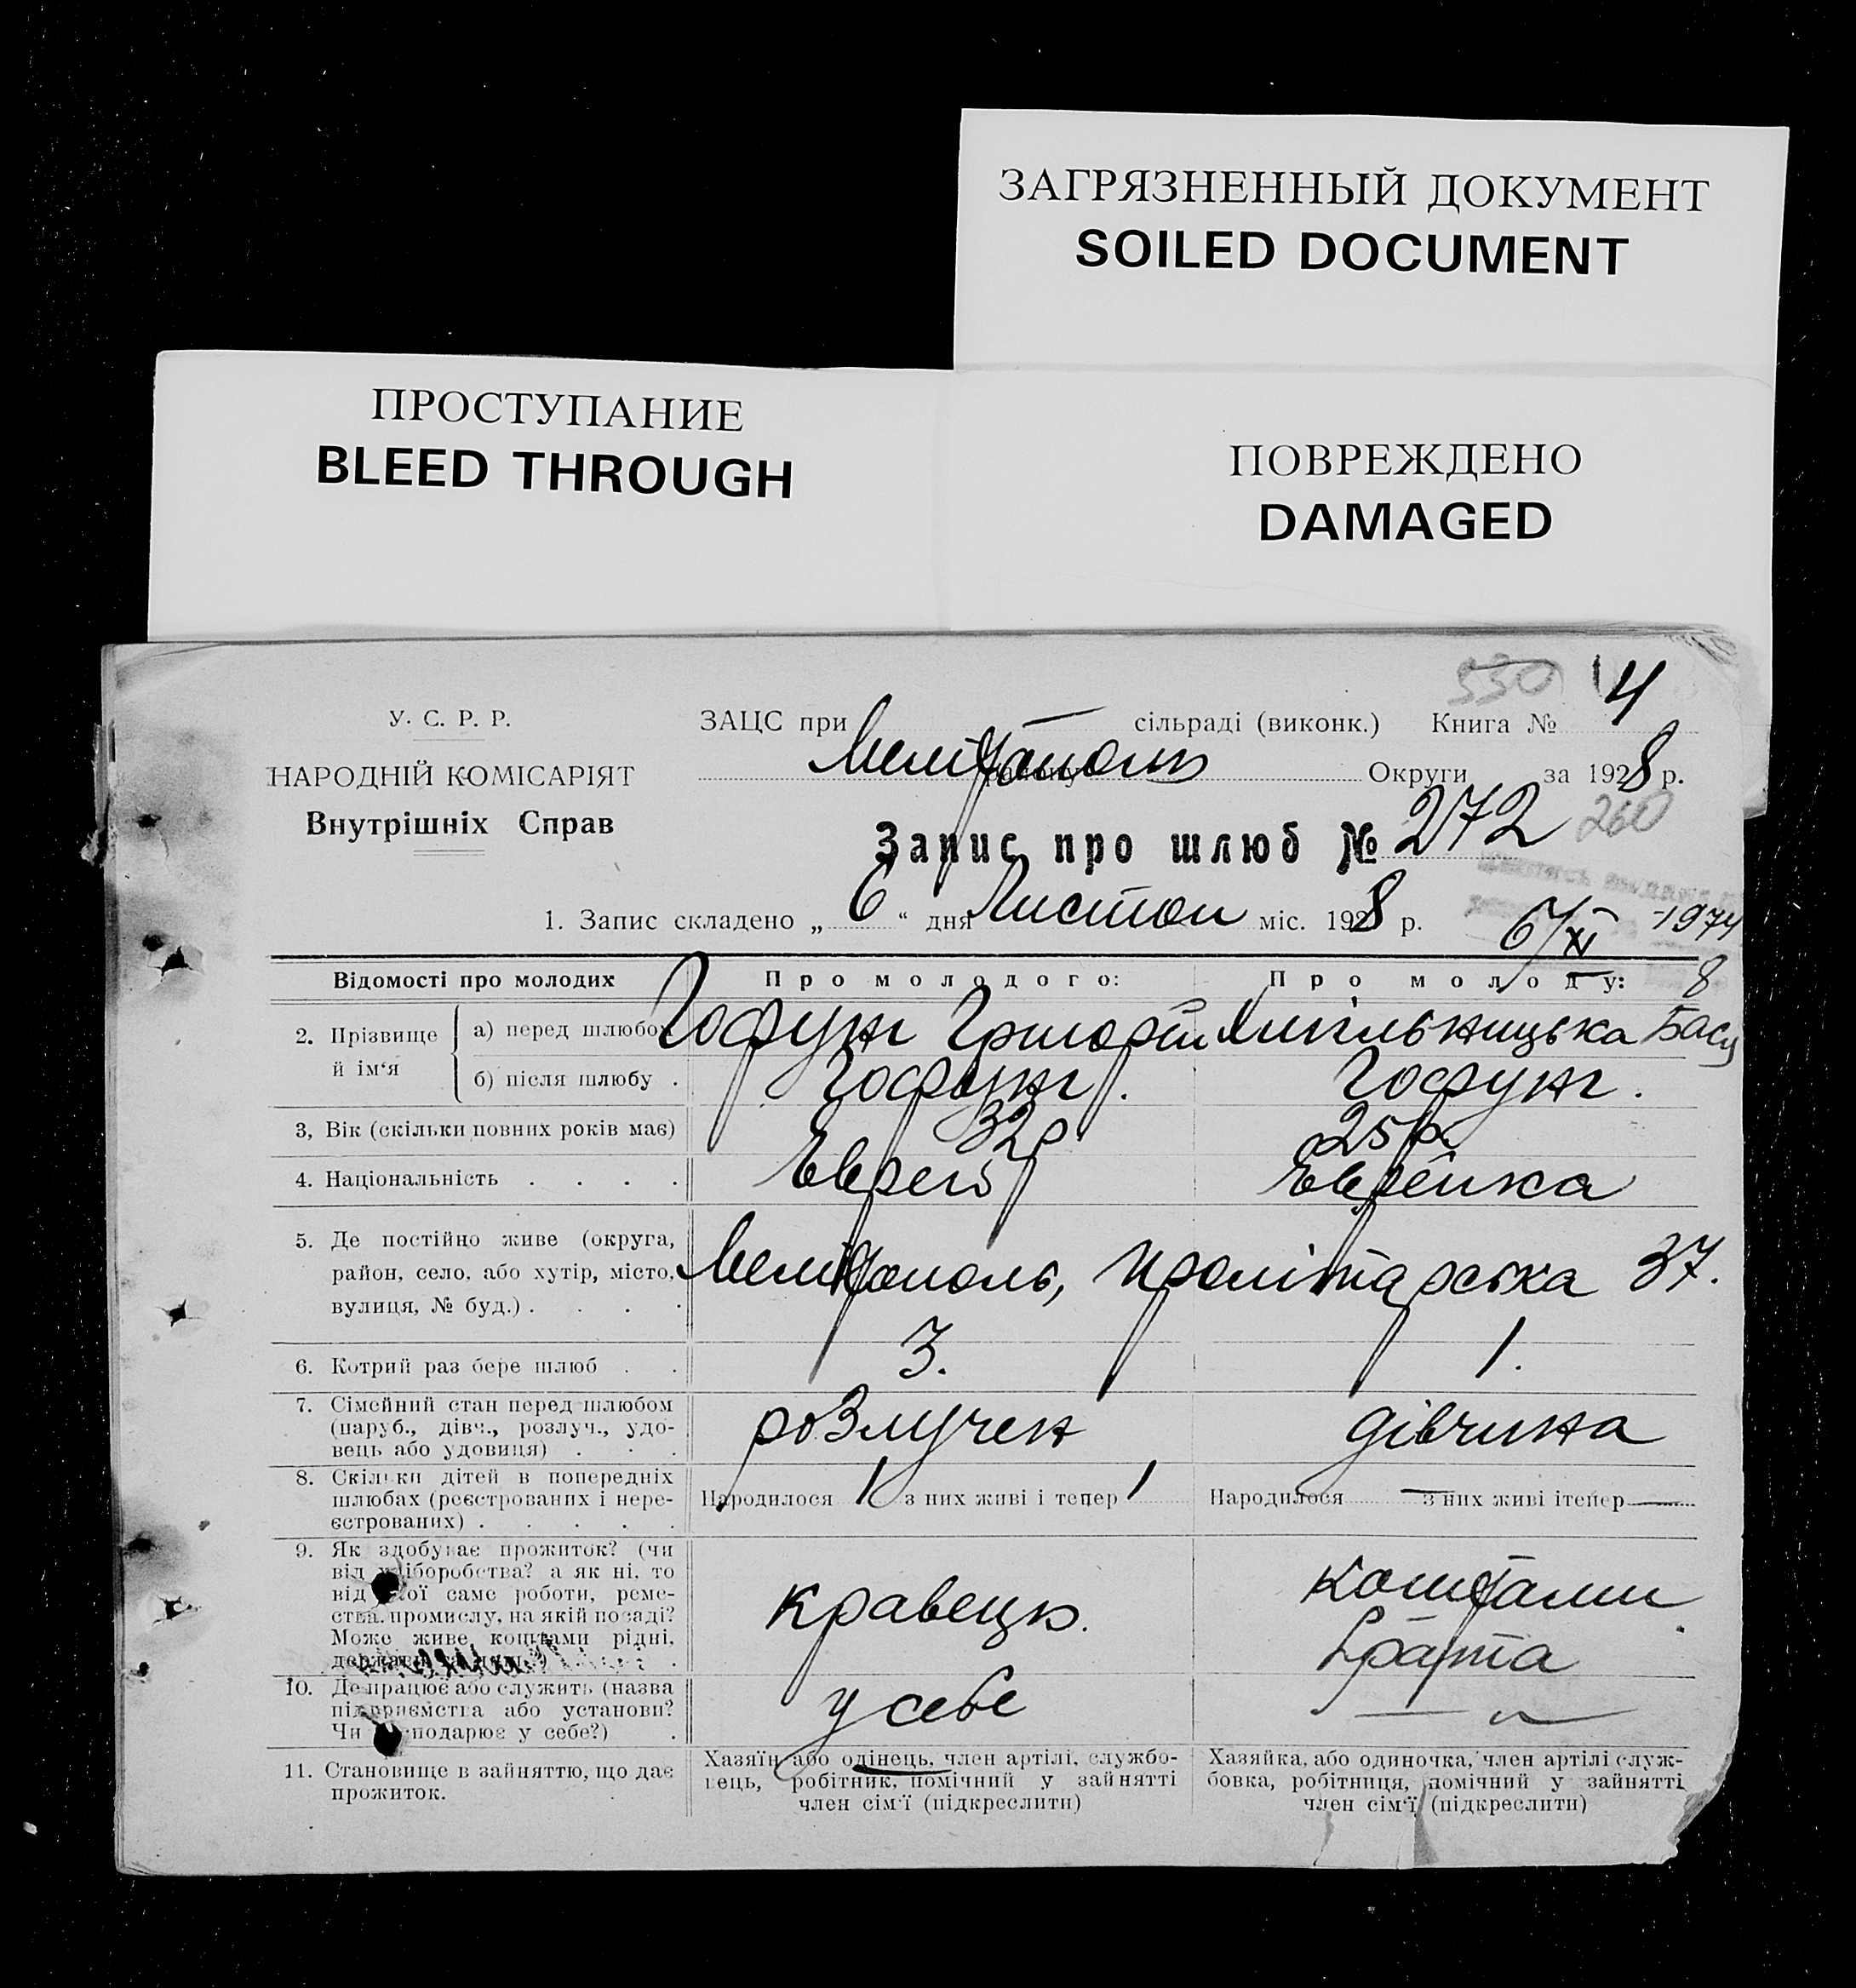 ЗАГРЯЗНЕННЫЙ ДОКУМЕНТ
SOILED DOCUMENT
ПРОСТУПАНИЕ
BLEED THROUGH
ПОВРЕЖДЕНО
DAMAGED
550 4
У. С. Р. Р.
ЗАЦС при сільраді (виконк.) Книга №
НАРОДНІЙ КОМІСАРІЯТ
Внутрішніх Справ
Округи за 1928 р.
Запис про шлюб № 272 260
1. Запис складено „ 6 “ дня Листоп міс. 1928 р.
6/XI -1974
8
Відомості про молодих Про молодого: Про молоду:
2. Прізвище й ім‘я
а) перед шлюбом Гофунг Григорій Хмільницька Бася
б) після шлюбу . Гофунг. Гофунг.
3, Вік (скільки повних років має) 32р. 25р.
4. Національність . . . . Еврей Еврейка
5. Де постійно живе (округа,
район, село, або хутір, місто,
вулиця, № буд.) . . . .
Мелітополь, Пролітарська 37.
6. Котрий раз бере шлюб . . 3. 1.
7. Сімейний стан перед шлюбом
(паруб., дівч., розлуч., удо-
вець або удовиця) . . .
розлучен дівчина
8. Скільки дітей в попередніх
шлюбах (реєстрованих і нере-
єстрованих) . . . . .
Народилося 1 з них живі і тепер 1
Народилося — з них живі ітепер —
9. Як здобуває прожиток? (чи
від хліборобства? а як ні, то
від якої саме роботи, реме-
ства, промислу, на якій посаді?
Може живе коштами рідні,
кравець.
коштами
брата
10. Де працює або служить (назва
підприємства або установи?
Чи господарює у себе?) .
у себе
—
11. Становище в зайняттю, що дає
прожиток.
Хазяїн або одінець, член артілі, службо-
вець, робітник, помічний у зайнятті
член сім‘ї (підкреслити)
Хазяйка, або одиночка, член артілі служ-
бовка, робітниця, помічний у зайнятті
член сім‘ї (підкреслити)